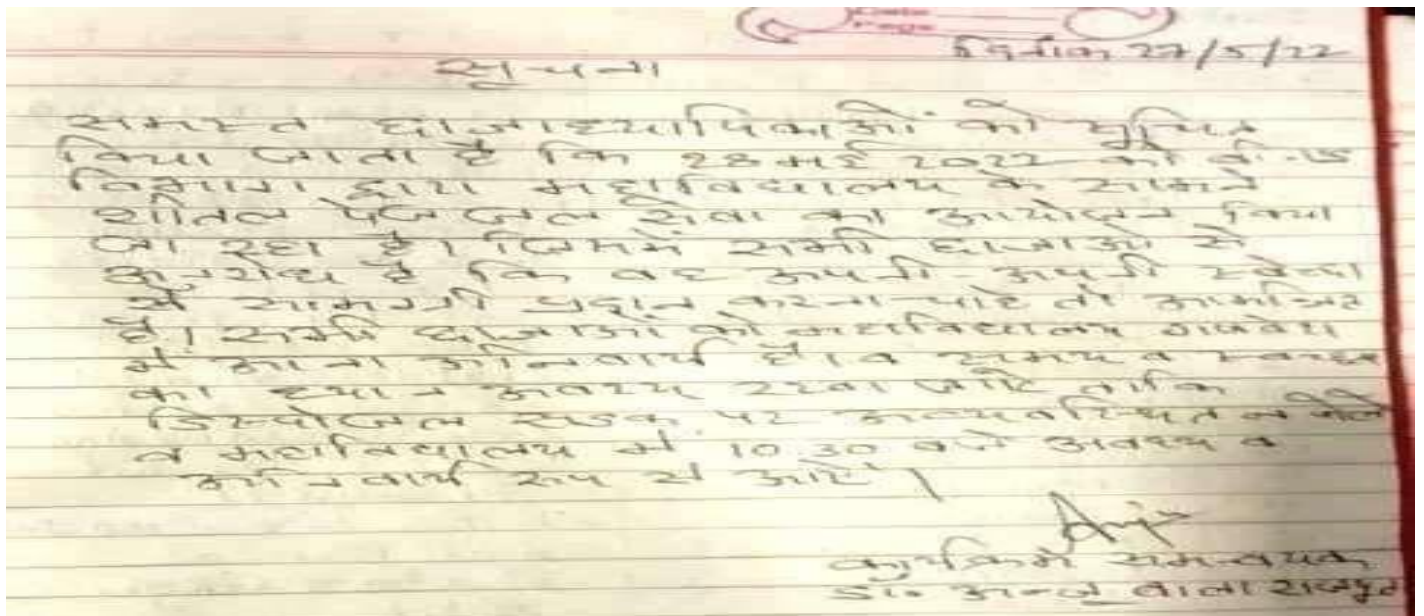 Date
Page
दिनांक 27/5/22
सूचना
समस्त छात्राध्यापिकाओं को सूचित
किया जाता है कि 28 मई 2022 को बी.एड
विभाग द्वारा महाविद्यालय के सामने
शीतल पेय जल सेवा का आयोजन किया
जा रहा है। जिसमें सभी छात्राओं से
अनुरोध है कि वह अपनी-अपनी स्वेच्छा
से सामग्री प्रदान करना चाहे तो आमंत्रित
है। सभी छात्राओं को महाविद्यालय गणवेश
में आना अनिवार्य है। व समय व स्वच्छता
का ध्यान अवश्य रखा जाए ताकि
डिस्पोजल सड़क पर अव्यवस्थित न फैले
व महाविद्यालय में 10:30 बजे अवश्य व
अनिवार्य रूप से आए।
कार्यक्रम समन्वयक
डॉ. अन्जु बाला राजपूत